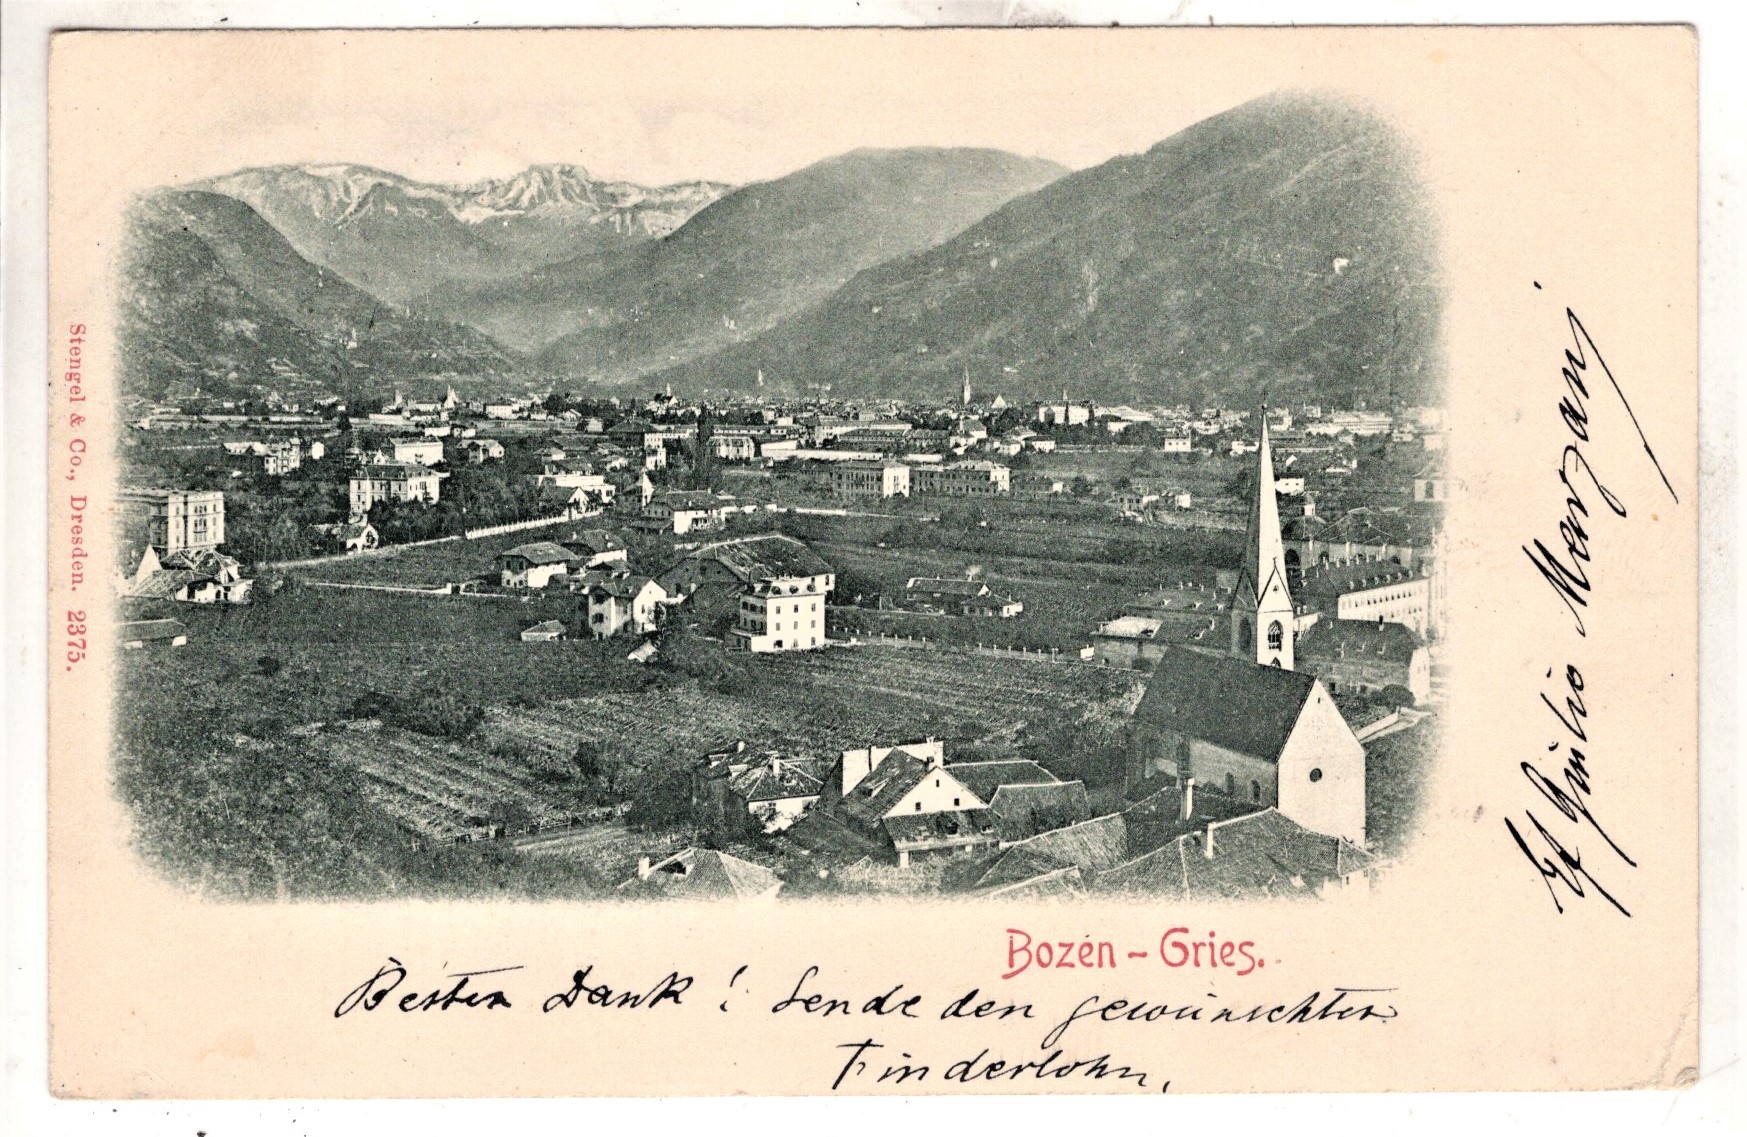 Stengel & Co., Dresden. 2375.
Bozen - Gries.
Bester Dank! Sende den gewünschten
Finderlohn.
Giulio Menzani